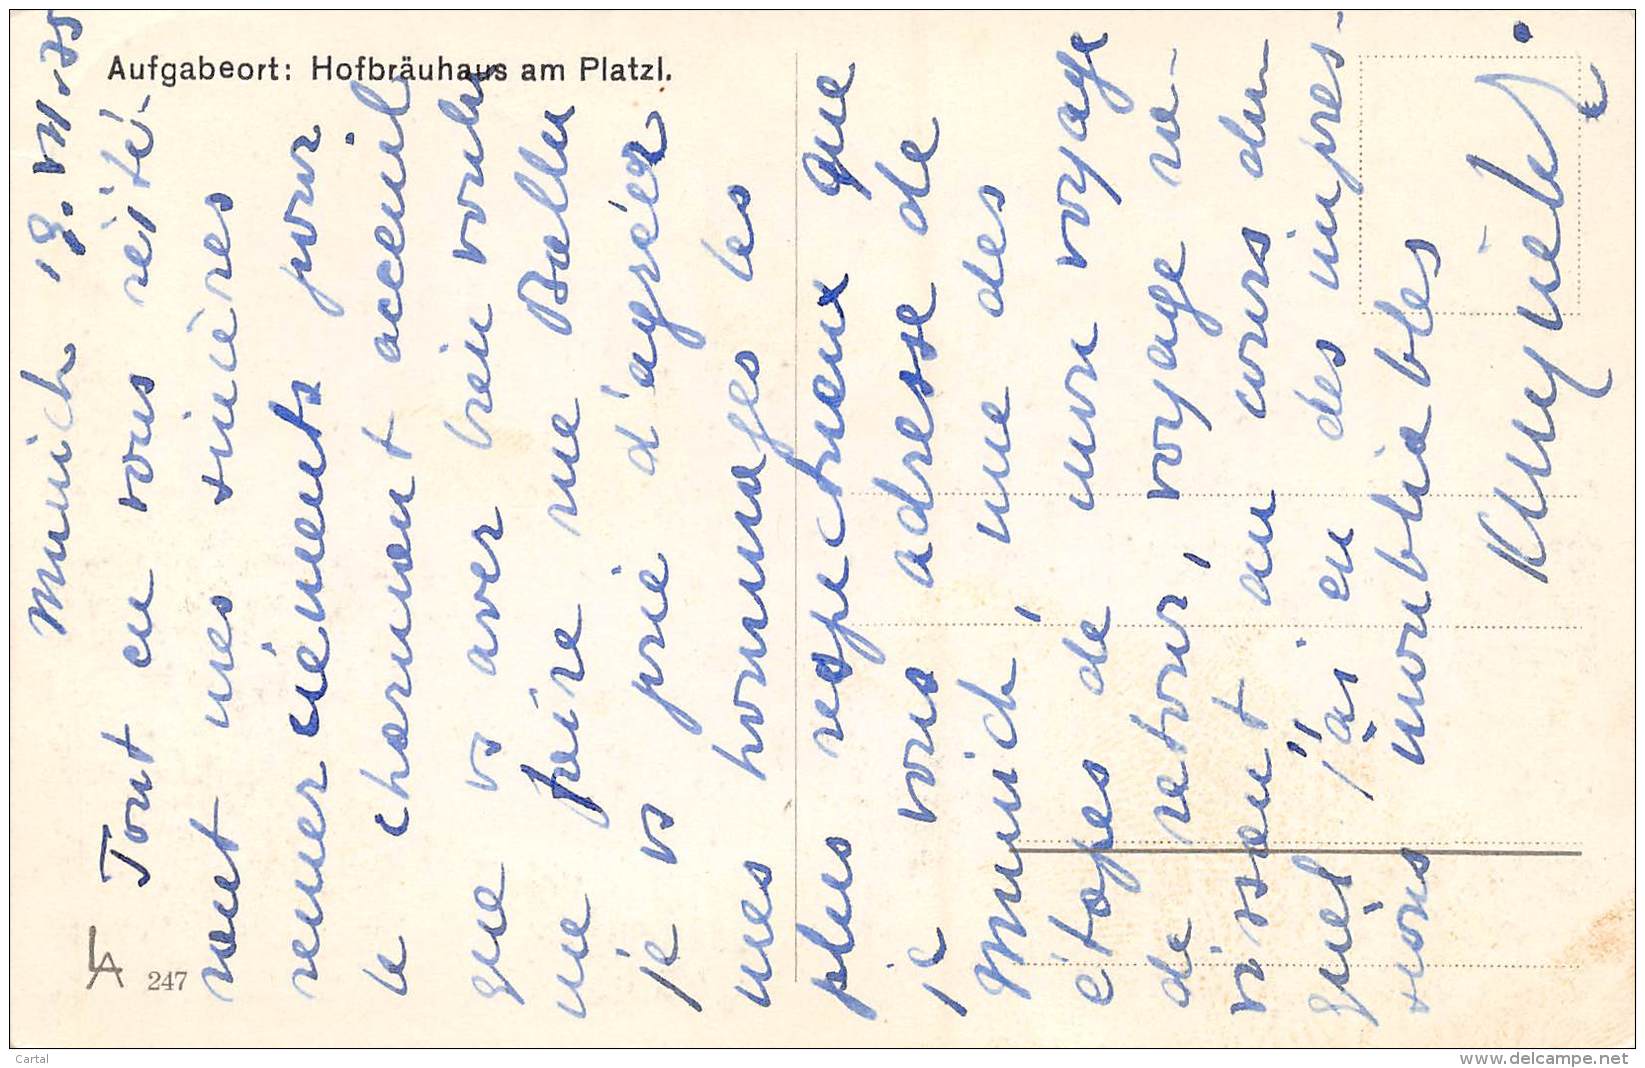 Aufgabeort: Hofbräuhaus am Platzl.
Munich 19.
Tout en vous réité-
rant mes sincères
remerciements pour
le charmant accueil
que vs avez bien voulu
me faire me
je vs prie d'agréer
mes hommages les
plus respectueux que
je vous adresse de
Munich, une des
étapes de mon voyage
de retour, voyage ra-
vissant au cours du
quel j'ai eu des impres-
sions inoubliables
LA
247
Cartal
www.delcampe.net